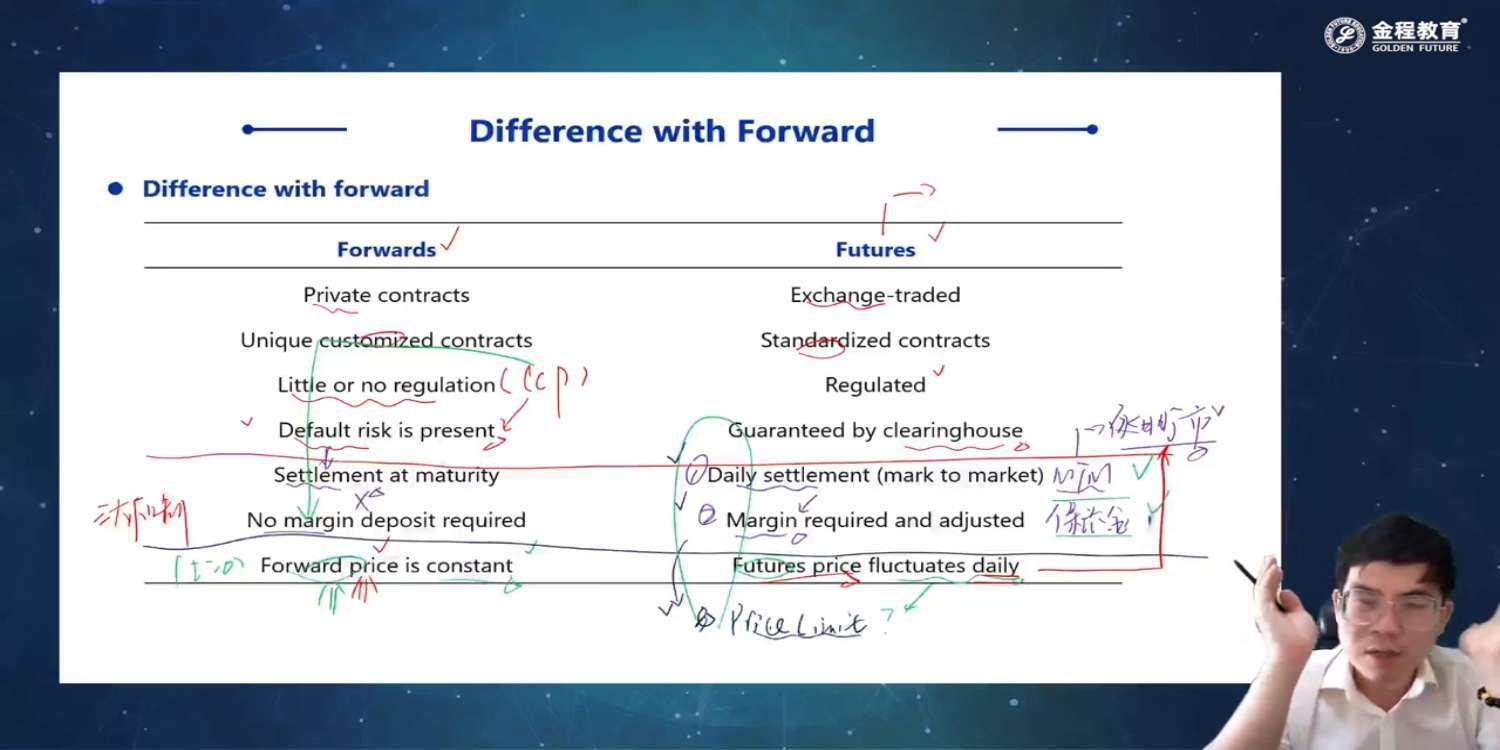 金程教育
GOLDEN FUTURE
Difference with Forward
Difference with forward
Forwards Futures
Private contracts Exchange-traded
Unique customized contracts Standardized contracts
Little or no regulation (CCP) Regulated
Default risk is present Guaranteed by clearinghouse
Settlement at maturity ① Daily settlement (mark to market) MTM
No margin deposit required ② Margin required and adjusted 保证金
(t=0) Forward price is constant Futures price fluctuates daily
③ Price Limit ?